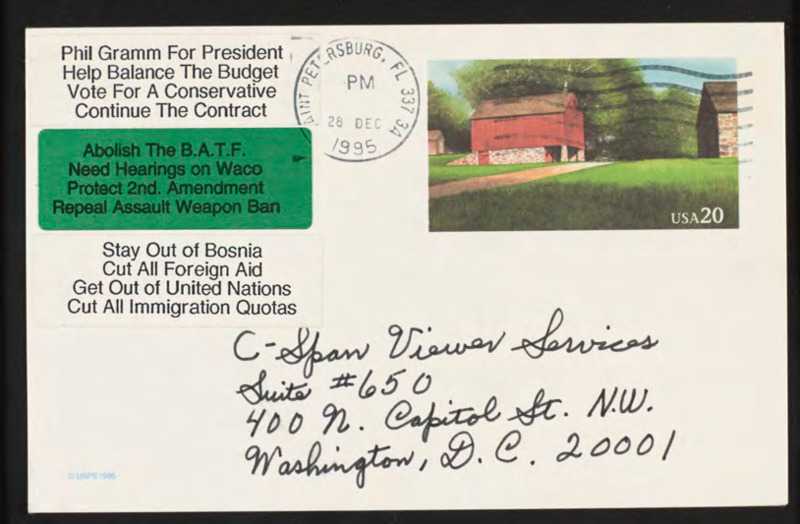 Phil Gramm For President
Help Balance The Budget
Vote For A Conservative
Continue The Contract
Abolish The B.A.T.F.
Need Hearings on Waco
Protect 2nd. Amendment
Repeal Assault Weapon Ban
Stay Out of Bosnia
Cut All Foreign Aid
Get Out of United Nations
Cut All Immigration Quotas
SAINT PETERSBURG, FL 337 3A
PM
28 DEC
1995
USA20
C-Span Viewer Services
Suite #650
400 N. Capitol St. N.W.
Washington, D.C. 20001
© USPS 1995